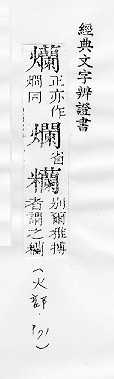 經典文字辨證書
爤正亦作燗同爛省糷別爾雅摶者謂之糷
(火部.171)